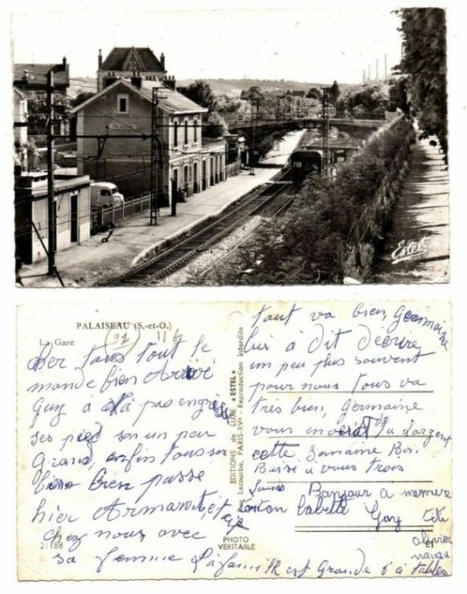 Estel
PALAISEAU (S.-et-O.)
La Gare
91
114
cher tous tout le
monde bien Arrivé
Guy a pas
ses pied son un peu
Grand, enfin tous
bien passe
hier Armand, et
chez nous avec
sa femme la famille est Grande 6 à table
EDITIONS de LUXE « ESTEL »
Lecourbe, PARIS-XVe - Reproduction interdite
PHOTO
VÉRITABLE
21188
tout va bien, Germaine
lui à dit d'écrire
un peu plus souvent
pour nous tous va
très bien, Germaine
vous enverrat du l'argent
cette Semaine Bon.
Baisé a vous trois
Bonjour a memere
tonton babette Guy